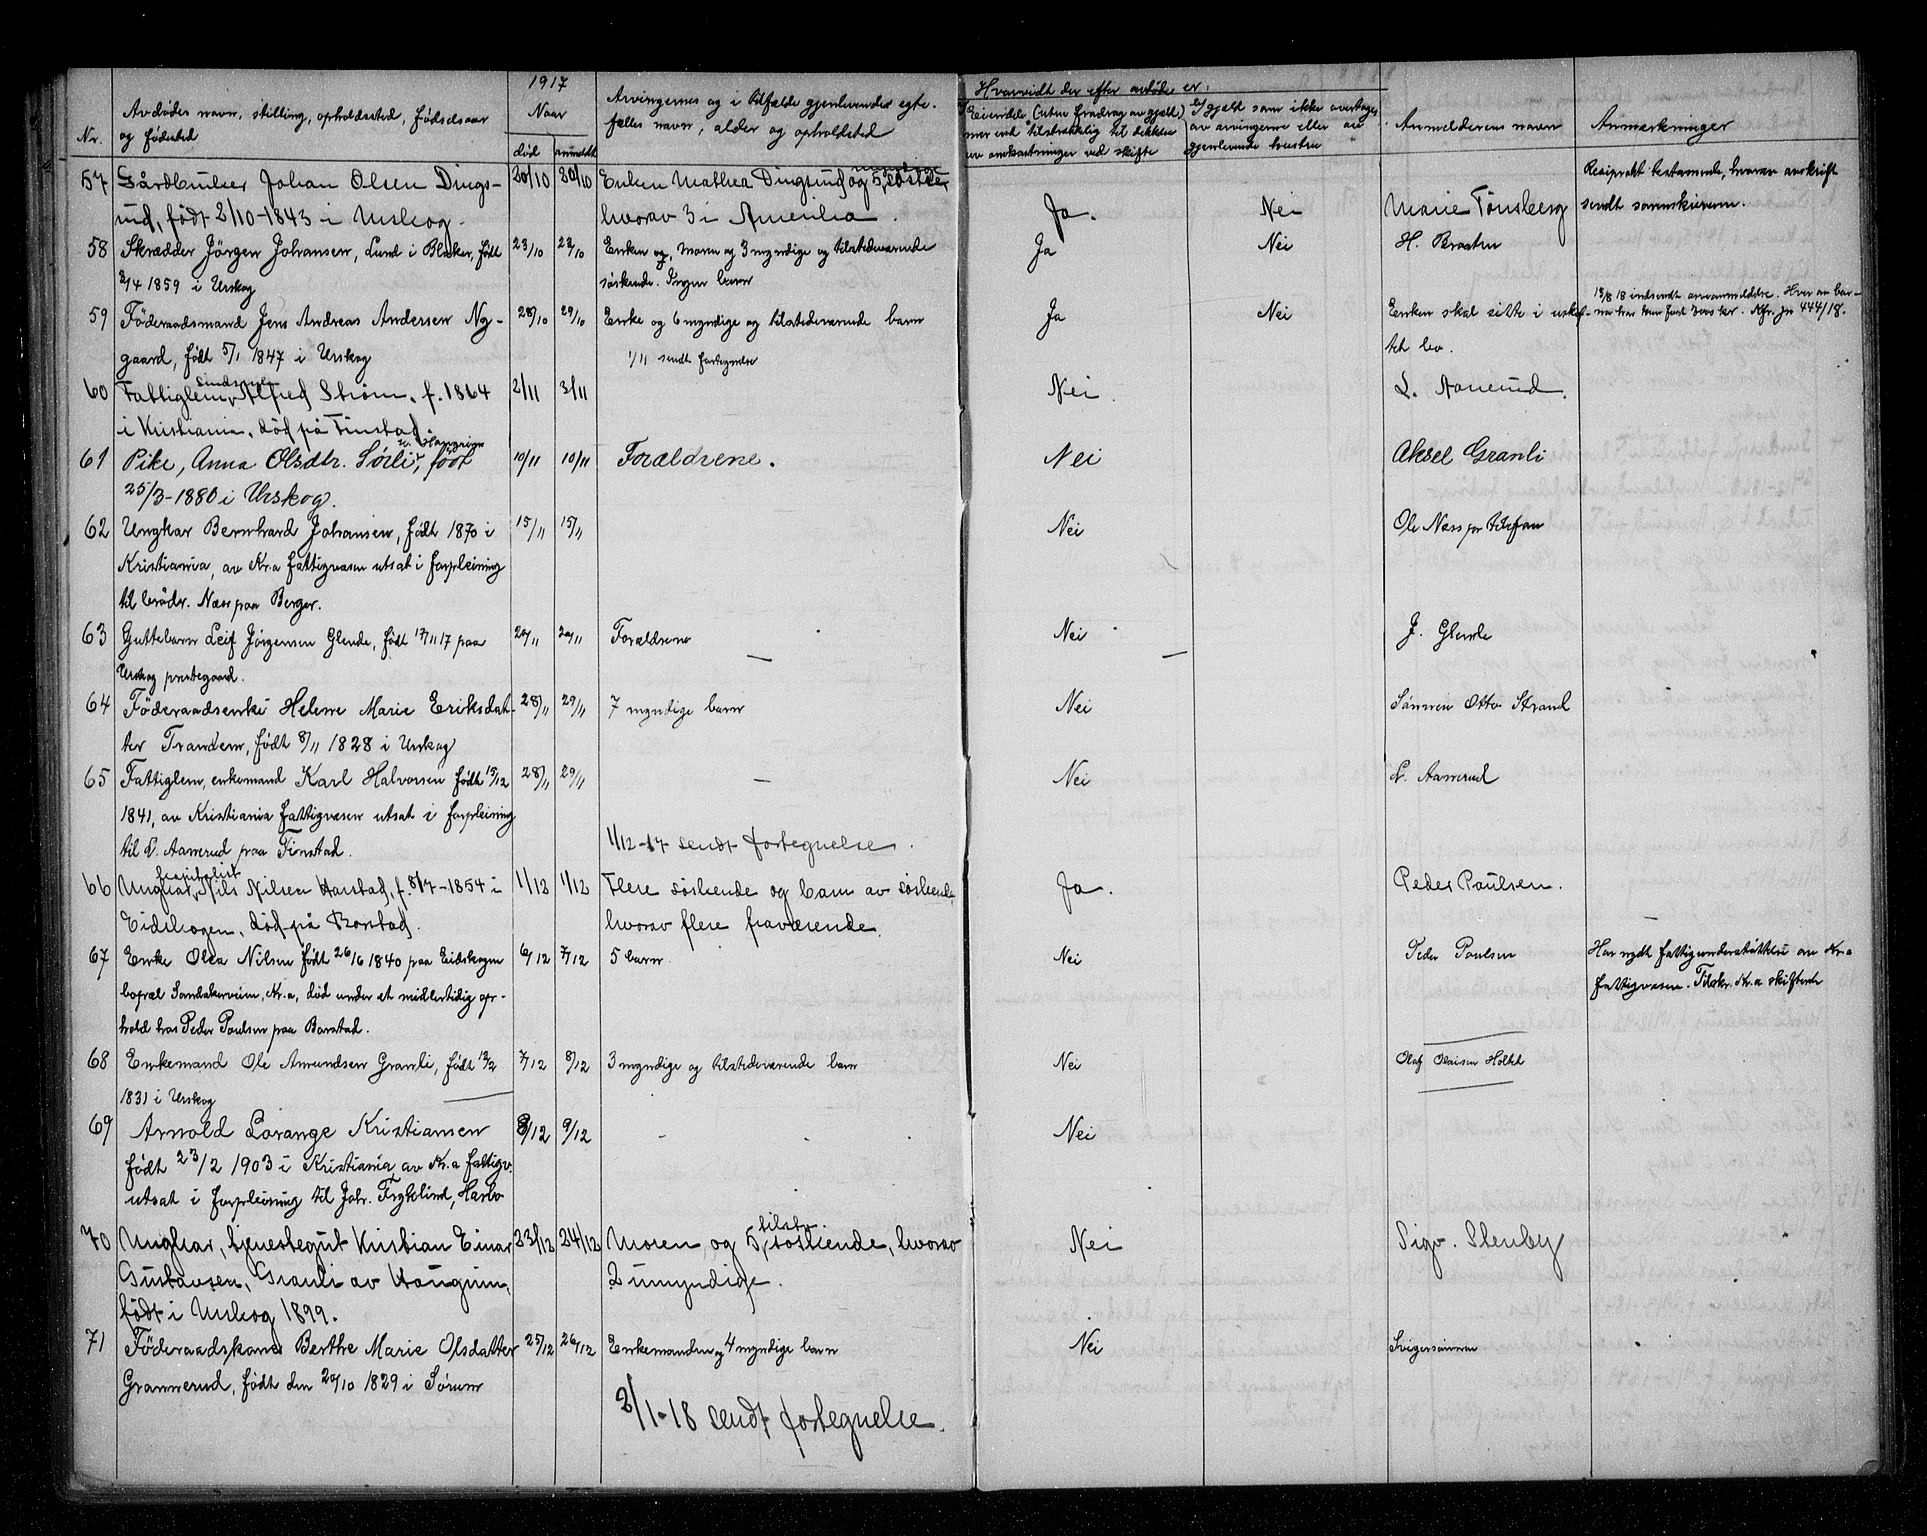 1917
Nr.
Avdødes navn, stilling, opholdssted, fødselsaar
og fødested
Naar
død
anmeldt
Arvingernes og i tilfælde gjenlevende egte-
fælles navn, alder og opholdsted
Hvorvidt der efter avdøde er:
a) Eiendele (uten fradrag av gjæld)
mer end tilstrækkelig til dækkelse
av omkostninger ved skifte
b) gjæld som ikke overtages
av arvingerne eller av
gjenlevende hustru
Anmelderens navn
Anmerkninger
57 Gårdbruker Johan Olsen Dings- 20/10 20/10 Enken Mathea Dingsrud og 5 myndige søstre
rud, født 2/10-1843 i Urskog. hvorav 3 i Amerika. Ja. Nei Marie Tønsberg
Resiprokt testamente, hvorav avskrift
sendt sorenskriveren.
58 Skrædder Jörgen Johansen, Lund i Blaker, født 23/10 23/10 Enken og, moren og 3 myndige og tilstedeværende Ja Nei H. Braaten
3/4 1859 i Urskog søskende. Ingen barn
59 Föderaadsmand Jens Andreas Andersen Ny- 28/10 29/10 Enke og 6 myndige og tilstedeværende barn Ja Nei Enken skal sitte i uskif-
gaard, født 5/1 1847 i Urskog 1/11 sendt fortegnelse tet bo.
13/8 18 indsendt arveanmeldelse. Hver av bar-
Kfr. jn 444/18.
60 Fattiglem, sindssyk Alfred Strøm, f. 1864 2/11 3/11 Nei. L. Aamerud.
i Kristiania, død på Finstad.
61 Pike, Anna Olsdtr. Sørli, født 10/11 10/11 Forældrene. Nei Aksel Granli
25/3-1880 i Urskog.
62 Ungkar Bernhard Johansen, født 1870 i 15/11 15/11 Nei Ole Næss pr telefon
Kristiania, av Kr.a fattigvæsen utsat i forpleining
til brödr. Næss paa Berger.
63 Guttebarn Leif Jörgensen Glende, født 17/11 17 paa 20/11 20/11 Forældrene Nei J. Glende
Urskog prestegaard.
64 Föderaadsenke Helene Marie Eriksdat- 28/11 29/11 7 myndige barn Nei Sönnen Otto Strand
ter Trandem, født 8/11 1828 i Urskog
65 Fattiglem, enkemand Karl Halvorsen født 15/12 28/11 29/11 — Nei L. Aamerud
1841, av Kristiania fattigvæsen utsat i forpleining
til L. Aamerud paa Finstad. 1/12-17 sendt fortegnelse.
66 Ungkar, kapitalist Nils Nilsen Harstad, f. 8/7-1854 i 1/12 1/12 Flere søskende og barn av søskende, Ja. Peder Paulsen.
Eidskogen, død på Borstad. hvorav flere fraværende.
67 Enke Olea Nilsen født 26/6 1840 paa Eidskogen 6/12 7/12 5 barn. Nei Peder Poulsen Har nydt fattigunderstøttelse av Kr.a
bopæl Sandakerveien, Kr.a, død under et midlertidig op- fattigvæsen. Tilskr. Kr.a skifterett
hold hos Peder Poulsen paa Borstad.
68 Enkemand Ole Amundsen Granli, født 12/2 7/12 8/12 3 myndige og tilstedeværende barn Nei Olaf Olaisen Holtet
1831 i Urskog
69 Arnold Lorange Kristiansen 8/12 9/12 - Nei
født 23/2 1903 i Kristiania, av Kr.a fattigv.
utsat i forpleining til Joh. Fryklind, Harbo
70 Ungkar, tjenestegut Kristian Einar 23/12 24/12 Moren og 5 tilst. søskende, hvorav Nei Sigv. Stenby
Gustavsen, Granli av Haugrim, 2 umyndige.
født i Urskog 1899.
71 Föderaadskone Berthe Marie Olsdatter 25/12 26/12 Enkemanden og 4 myndige barn Nei Svigersönnen
Grannerud, født den 20/10 1829 i Sørum
2/1-18 sendt fortegnelse.